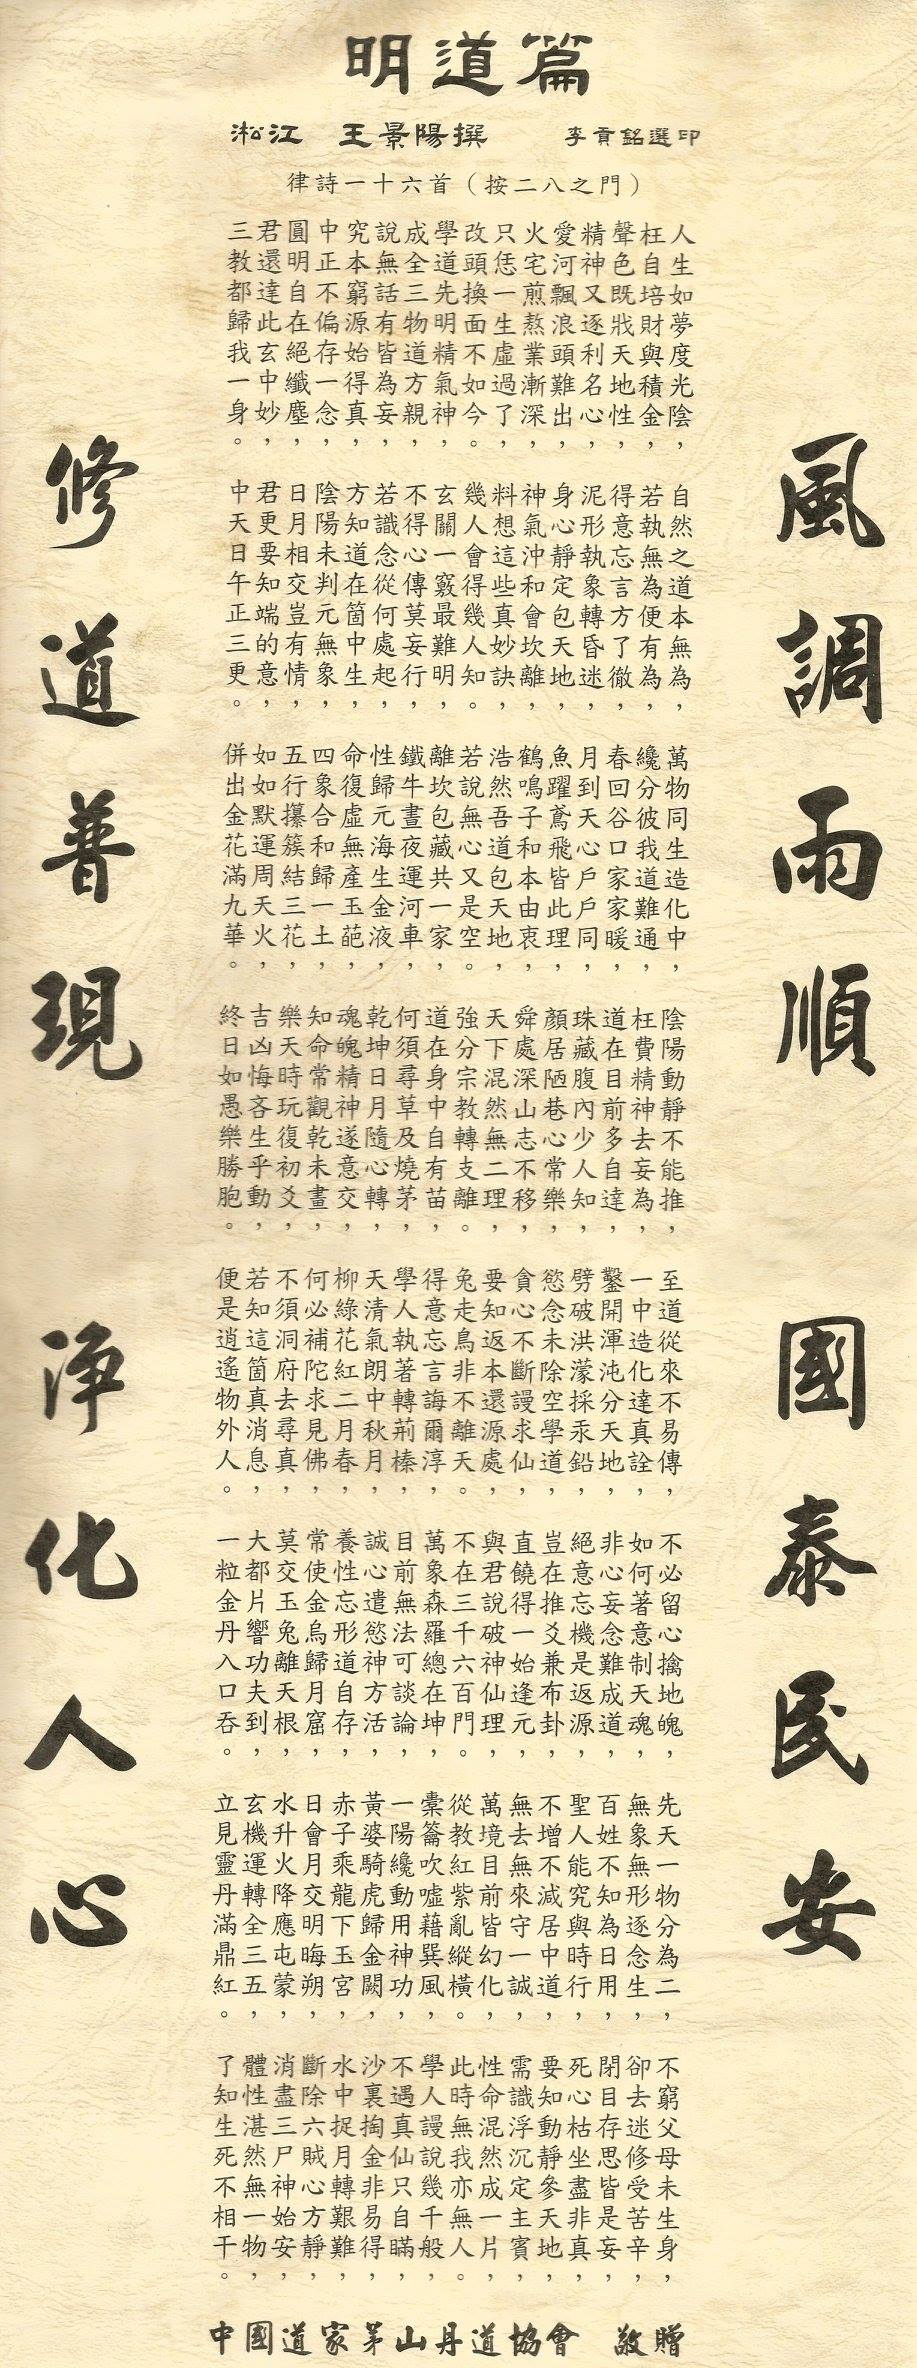 明道篇
淞江　王景陽撰　　李貢銘選印
律詩一十六首（按二八之門）
風調雨順　國泰民安
人生如夢度光陰，
枉自培財與積金，
聲色既戕天地性，
精神又逐利名心，
愛河飄浪頭難出，
火宅煎熬業漸深，
只恁一生虛過了，
改頭換面不如今。
學道先明精氣神，
成全三物道方親，
說無話有皆為妄，
究本窮源始得真，
中正不偏存一念，
圓明自在絕纖塵，
君還達此玄中妙，
三教都歸我一身。
自然之道本無為，
若執無為便有為，
得意忘言方了徹，
泥形執象轉昏迷，
身心靜定包天地，
神氣沖和會坎離，
料想這些真妙訣，
幾人會得幾人知。
玄關一竅最難明，
不得心傳莫妄行，
若識念從何處起，
方知道在箇中生，
陰陽未判元無象，
日月相交豈有情，
君更要知端的意，
中天日午正三更。
萬物同生造化中，
纔分彼我道難通，
春回谷口家家暖，
月到天心戶戶同，
魚躍鳶飛皆此理，
鶴鳴子和本由衷，
浩然吾道包天地，
若說無心又是空。
離坎包藏共一家，
鐵牛晝夜運河車，
性歸元海生金液，
命復虛無產玉葩，
四象合和歸一土，
五行攢簇結三花，
如如默運周天火，
併出金花滿九華。
陰陽動靜不能推，
枉費精神去妄為，
道在目前多自達，
珠藏腹內少人知，
顏居陋巷心常樂，
舜處深山志不移，
天下混然無二理，
強分宗教轉支離。
道在身中自有苗，
何須尋草及燒茅，
乾坤日月隨心轉，
魂魄精神遂意交，
知命常觀乾未畫，
樂天時玩復初爻，
吉凶悔吝生乎動，
終日如愚樂勝胞。
至道從來不易傳，
一中造化達真詮，
鑿開渾沌分天地，
劈破洪濛採汞鉛，
慾念未除空學道，
貪心不斷謾求仙，
要知返本還源處，
兔走烏非不離天。
得意忘言誨爾淳，
學人執著轉荊榛，
天清氣朗中秋月，
柳綠花紅二月春，
何必補陀求見佛，
不須洞府去尋真，
若知這箇真消息，
便是逍遙物外人。
不必留心擒地魄，
如何著意制天魂，
非心妄念難成道，
絕意忘機是返源，
豈在推爻兼布卦，
直饒得一始逢元，
與君說破神仙理，
不在三千六百門。
萬象森羅總在坤，
目前無法可談論，
誠心遣慾神方活，
養性忘形道自存，
常使金烏歸月窟，
莫交玉兔離天根，
大都片響功夫到，
一粒金丹入口吞。
先天一物分為二，
無象無形逐念生，
百姓不知為日用，
聖人能究與時行，
不增不減居中道，
無去無來守一誠，
萬境目前皆幻化，
從教紅紫亂縱橫。
橐籥吹噓藉巽風，
一陽纔動用神功，
黃婆騎虎歸金闕，
赤子乘龍下玉宮，
日會月交明晦朔，
水升火降應屯蒙，
玄機運轉全三五，
立見靈丹滿鼎紅。
不窮父母未生身，
卻去迷修受苦辛，
閉目存思皆是妄，
死心枯坐盡非真，
要知動靜參天地，
需識浮沉定主賓，
性命混然成一片，
此時無我亦無人。
學人謾說幾千般，
不遇真仙只自瞞，
沙裏掏金非易得，
水中捉月轉艱難，
斷除六賊心方靜，
消盡三尸神始安，
體性湛然無一物，
了知生死不相干。
修道普現　淨化人心
中國道家茅山丹道協會　敬贈